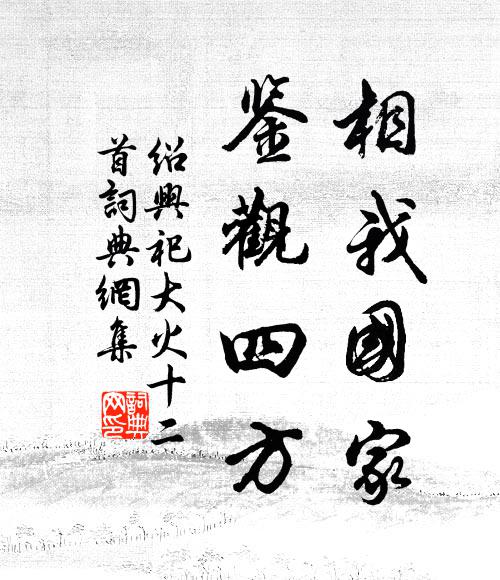 相我國家
鉴觀四方
绍興祀大火十二
首詞典網集
詞典
网印